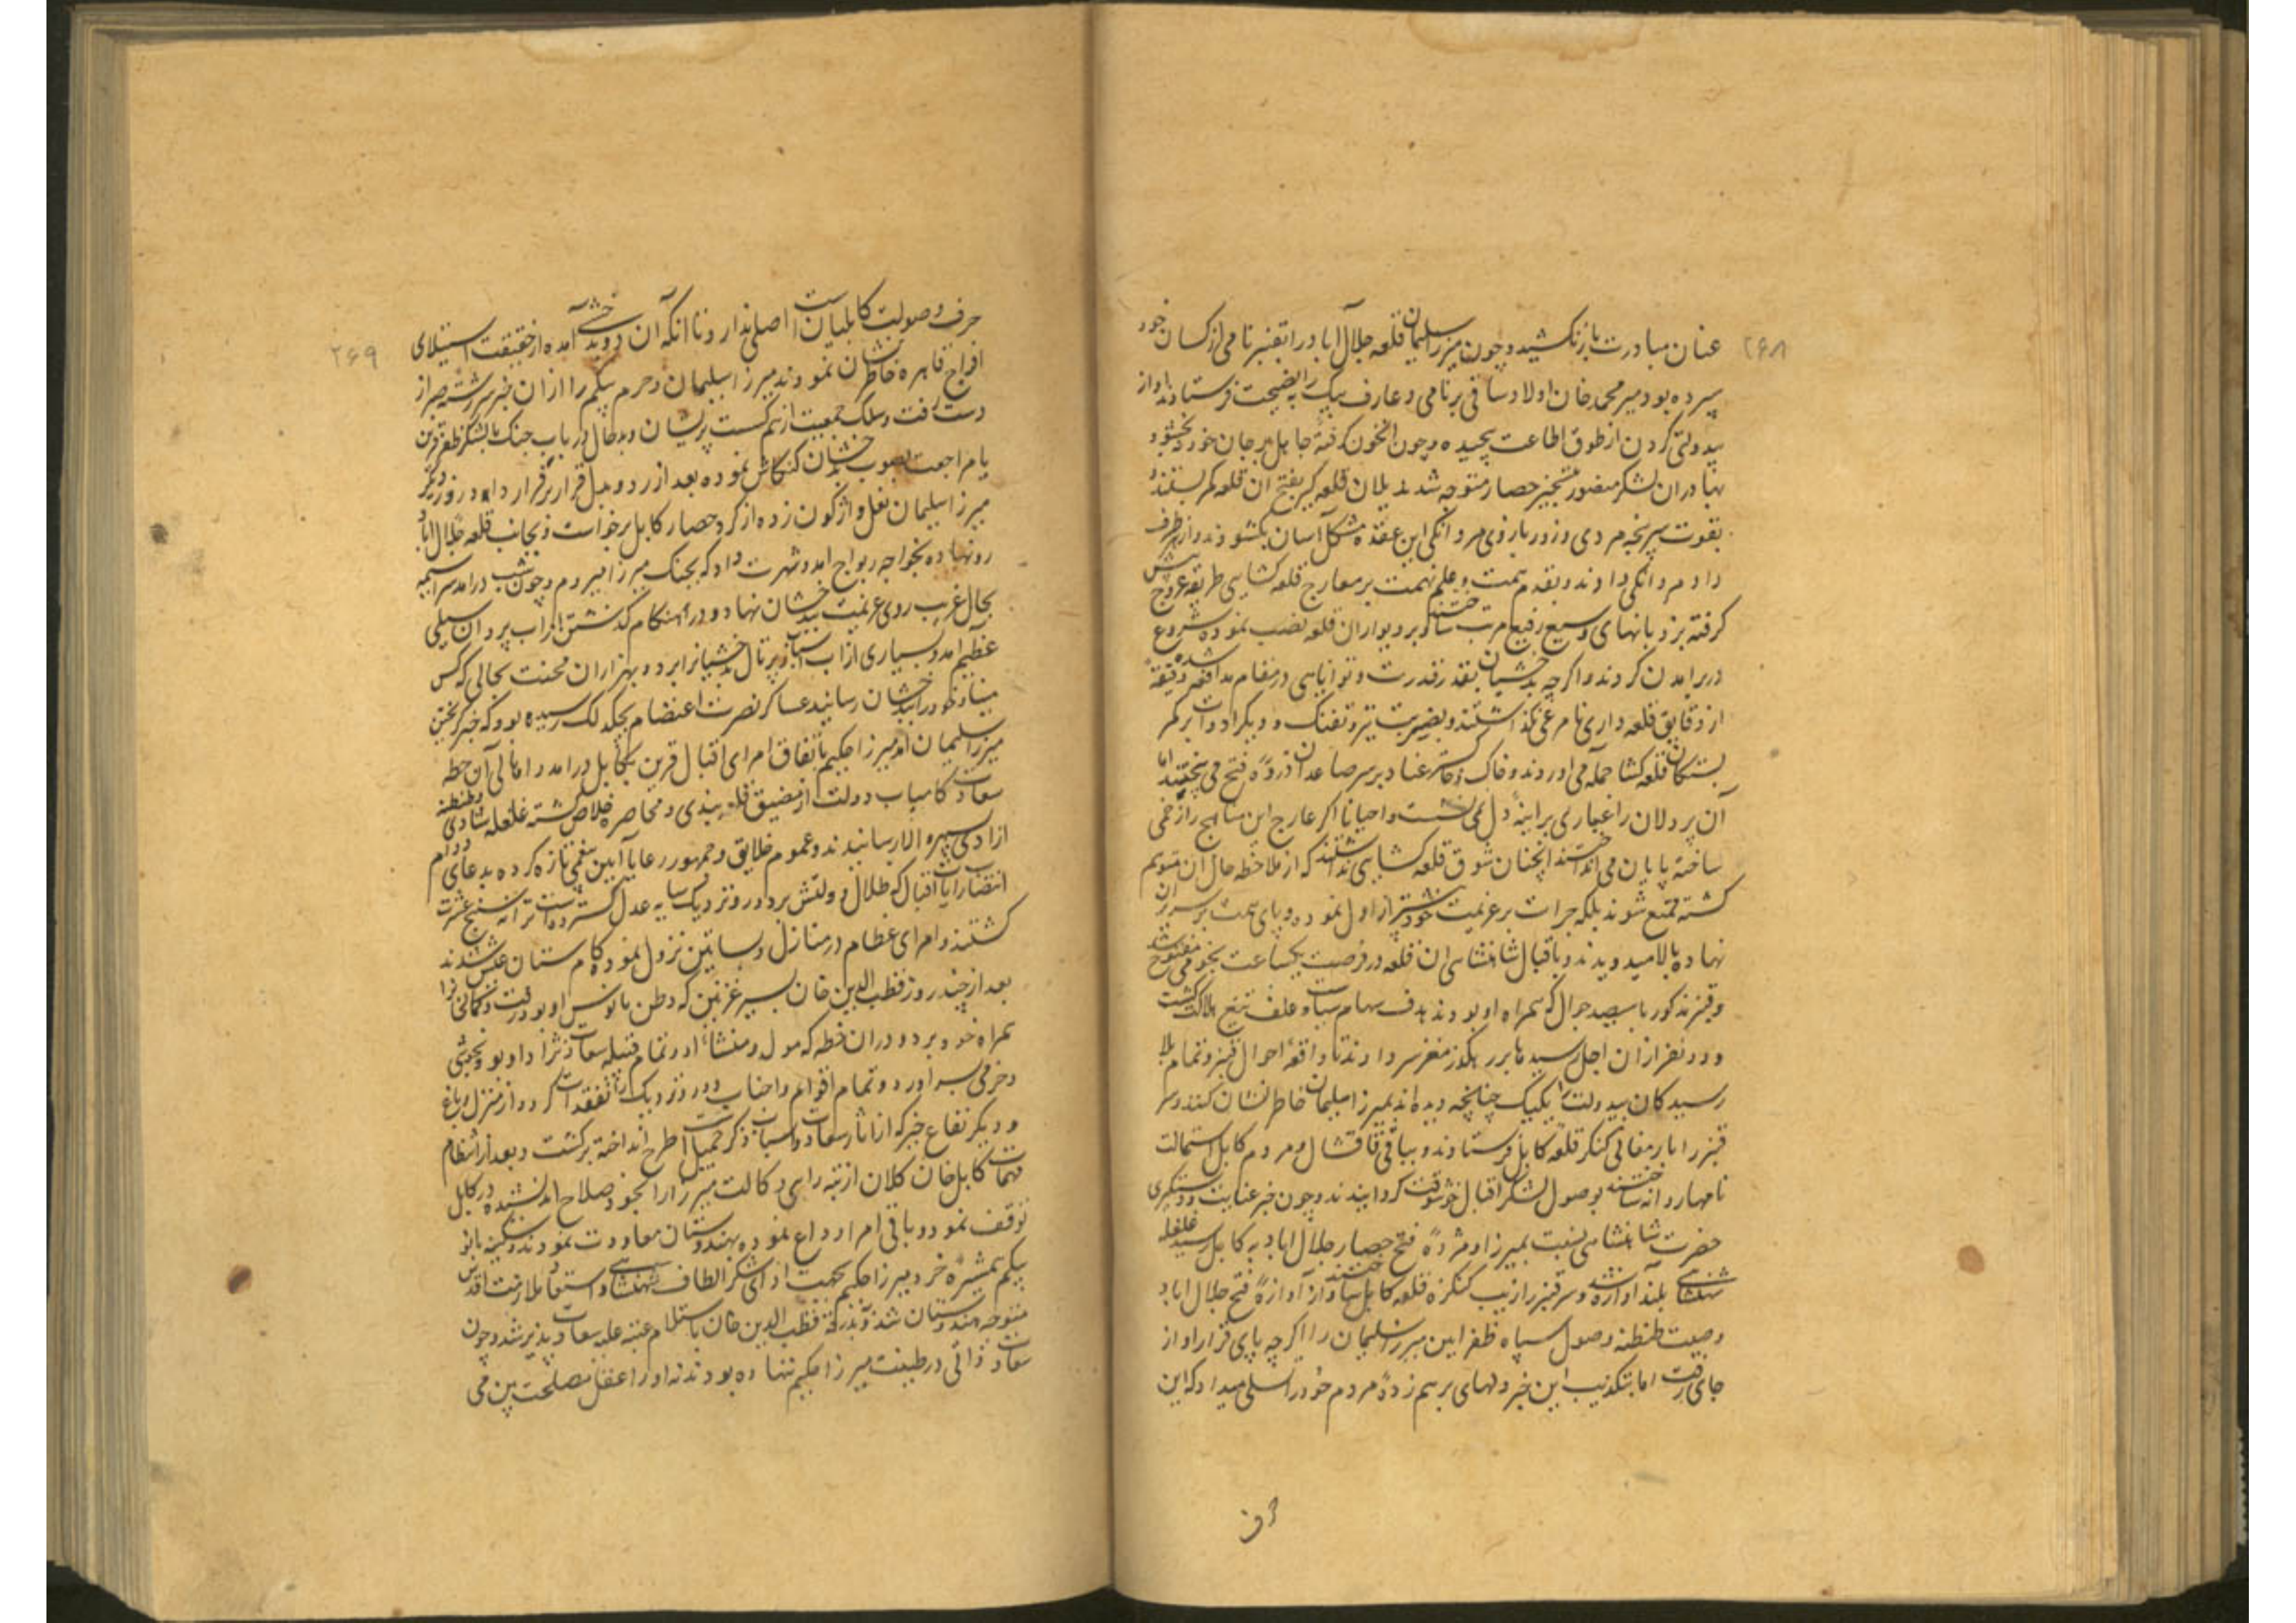 ۲۶۸
عنان مبادرت باز نکشید و چون میرزا سلیمان قلعه جلال آباد را بقنبر نامی از کسان خود
سپرده بود میر محمد خان اولا وساقی ترنامی و عارف بیک را به نصیحت فرستادند او از
بیدولتی کردن از طوق اطاعت پیچیده و چون آن خون گرفته جاهل بر جان خود نبخشود
بهادران لشکر منصور بتسخیر حصار متوجه شدند یلان قلعه گیر بفتح ان قلعه کمر بستند و
بقوت سرپنجه مردی و زور بازوی مردانگی این عقده مشکل آسان بگشودند و از هر طرف
داد مردانگی دادند و بقدم همت و علم نهمت بر معارج قلعه کشایی طریقه عروج پیش
گرفته نردبانهای وسیع رفیع مرتب ساختند و بر دیوار ان قلعه نصب نموده شروع
در برامدن کردند و اگر چه بدخشیان بقدر قدرت و توانایی در مقام مدافعه شده دقیقه
از دقایق قلعه داری نامرعی نگذاشتند و بضربت تیر و تفنک و دیگر ادوات بر کمر
بستگان قلعه کشا حمله می اوردند و خاک و خاکستر عناد بر سر صاعدان ذروه فتح می بیختند اما
آن پردلان را غباری بر اینه دل نمی نشست و احیانا اگر عارج این مناهج را زخمی
ساخته پایان می انداختند انچنان شوق قلعه کشایی نداشتند که از ملاحظه حال ان
کشته ممتنع شوند بلکه جرات بر عزیمت خود بیشتر از اول نموده و پای همت بر سر ان
نهاده بالا میدویدند و باقبال شاهنشاهی ان قلعه در فرصت یکساعت نجومی مفتوح شد
و قنبر مذکور با سیصد جوال که همراه او بودند هدف سهام سیاست و علف تیغ هلاک گشت
و دو نفر از ان اجل رسیدها بر رهگذر مغز سر دادند تا واقعه احوال قنبر و تمام بلا
رسیدگان بیدولت را یکیک چنانچه دیده اند بمیرزا سلیمان خاطر نشان کنند و سر
قنبر را بارمغانی کنگر قلعه کابل فرستادند و بباقی قاقشال و مردم کابل استمالت
نامها روانه ساختند بوصول لشکر اقبال خوشوقت گردانیدند و چون خبر عنایت و دستگیری
حضرت شاهنشاهی نسبت بمیرزا و مژده فتح حصار جلال اباد به کابل رسید غلغله
شهنشاهی بلند آوازه شد و سر قنبر را زیب کنگره قلعه کابل ساختند و از آوازه فتح جلال اباد
و صیت طنطنه وصول سپاه ظفر ایین میرزا سلیمان را اگر چه پای قرار او از
جای رفت اما بتکذیب این خبر دلهای برهم زده مردم خود را تسلی میداد که این
حرف
۲۶۹
حرف و صولت کابلیان است اصلی ندارد تا انکه آن دو بدخشی آمده از حقیقت استیلای
افواج قاهره خاطر نشان نمودند میرزا سلیمان و حرم بیگم را از ان خبر سررشته صبر از
دست رفت و سلک جمعیت از هم گسست پریشان و بدحال در باب جنک با لشکر ظفر قرین
یا مراجعت بصوب بدخشان کنکاش نموده بعد از رد و بدل قرار بر فرار داد و روز دیگر
میرزا سلیمان نعل واژگون زده از گرد حصار کابل برخواست و بجانب قلعه جلال اباد
رو نهاده بخواجه رواج امد و شهرت داد که بجنک میرزا میروم و چون شب درامد سراسیمه
بحال غریب روی عزیمت ببدخشان نهاد و در هنگام گذشتن از اب پروان سیلی
عظیم امد و بسیاری از اسباب و پرتال بدخشیانرا برد و بهزاران محنت بحالی که کس
مبیناد خود را ببدخشان رسانید عساکر نصرت اعتضام بجکدلک رسیده بود که خبر گریختن
میرزا سلیمان امد میرزا حکیم باتفاق امرای اقبال قرین بکابل درامد و اهالی آن خطه
سعادت کامیاب دولت از مضیق قلعه بندی و محاصره خلاص گشته غلغله شادی و طنطنه
ازادی بسپهر والا رسانیدند و عموم خلایق و جمهور رعایا آیین بیغمی تازه کرده بدعای دوام
انتصاب رایات اقبال که ظلال دولتش بر دور و نزدیک سایه عدل گسترده است ترانه سنج عشرت
گشتند و امرای عظام در منازل و بساتین نزول نموده کام ستان عیش شدند
بعد از چند روز قطب الدین خان بسیر غزنین که وطن مالوفش او بود رفت و کمال خانرا
همراه خود برد و در ان خطه که مولد و منشاء او و تمام قبیله سعادت نژاد او بود بخوشی
و خرمی بسر اورد و تمام اقوام و احباب دور و نزدیک را تفقدات کرد و از منزل و باغ
و دیگر بقاع خیر که از اثار سعادت و اسباب ذکر جمیل است طرح انداخته برگشت و بعد از انتظام
مهمات کابل خان کلان ازتبه رایی وکالت میرزا را بخود صلاح اندیشیده در کابل
توقف نمود و باقی امرا وداع نموده بهندوستان معاودت نمودند و سکینه بانو
بیگم همشیره خرد میرزا حکیم بجهت ادای شکر الطاف شهنشاهی و استسعاد ملازمت اقدس
متوجه هندوستان شد و ببدرقه قطب الدین خان باستلام عتبه علیه سعادت پذیر شد و چون
سعادت ذاتی در طبیعت میرزا حکیم ننهاده بودند نه او را عقل مصلحت بین می